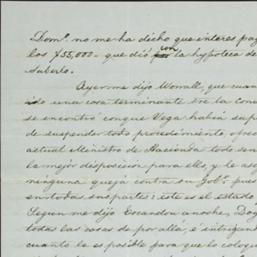 Domº no me ha dicho que interes pag
los $55,000 - que dió con la hypoteca de
Suberbo.
Ayer me dijo Worrall, que cuan
ido una cosa terminante sre la Conv
se encontró conque Vega habia susp
de suspender todo procedimiento, ofrec
actual Ministro de Hacienda todo sen
la mejor disposicion para ellos, y le ase
ninguna queja contra su Gobº. pues
en todas sus partes: este es el estado
Segun me dijo Escandon anoche, Doy
todas las casas de por allá, é intrigando
cuanto le es posible para que lo coloqu